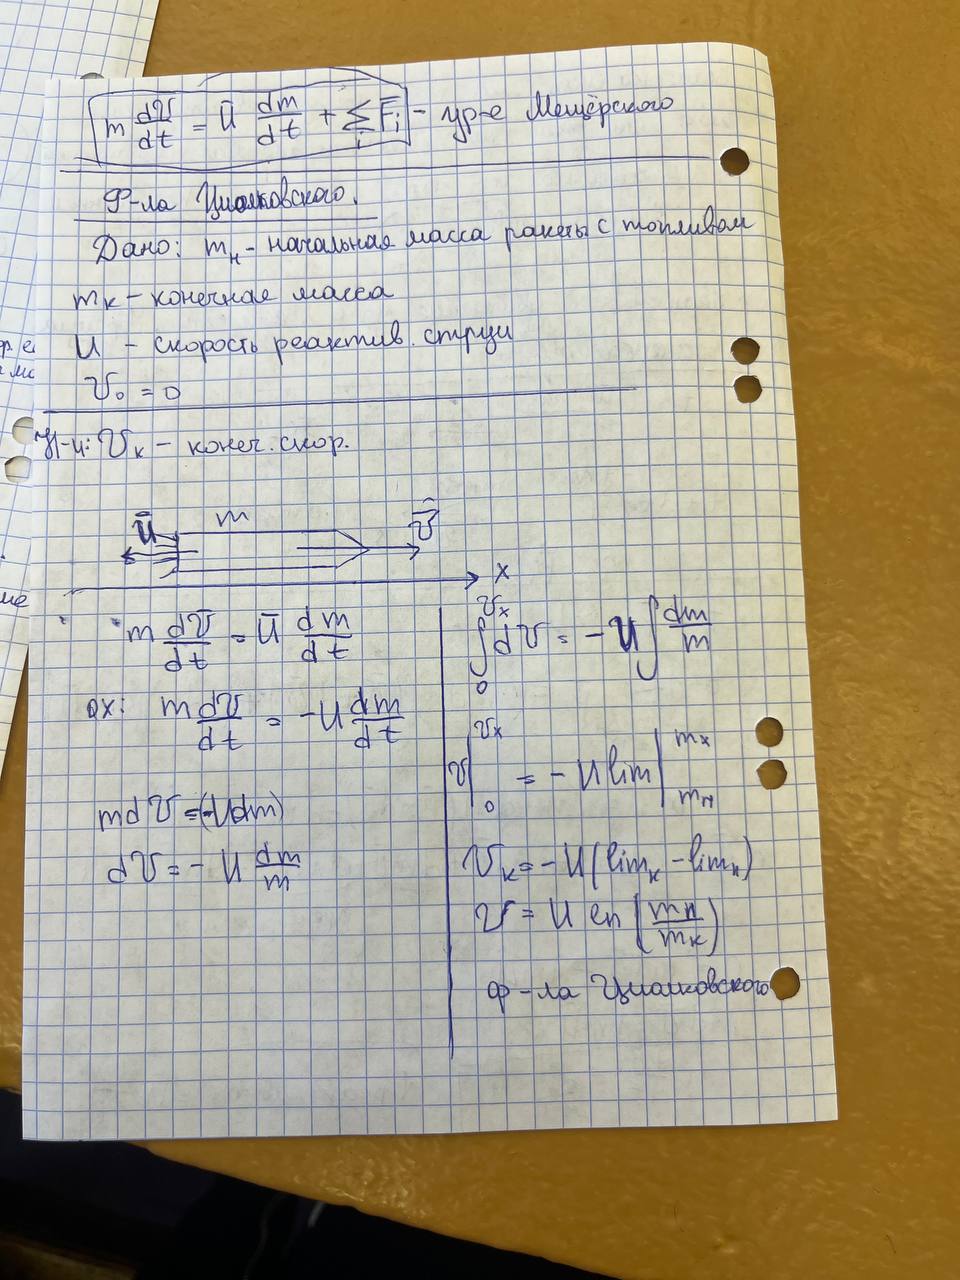 m dV/dt = ū dm/dt + Σᵢ F̄ᵢ - ур-е Мещёрского
Ф-ла Циолковского.
Дано: mн - начальная масса ракеты с топливом
mк - конечная масса
U - скорость реактив. струи
V₀ = 0
Н-и: Vк - конеч. скор.
ū m V̄
x
m dV̄/dt = ū dm/dt
ox: m dV/dt = -U dm/dt
mdV = (-Udm)
dV = - U dm/m
∫₀^Vx dV = - U ∫ dm/m
V |₀^Vx = - U lim |mн^mx
Vк = -U (limк - limн)
V = U en (mн/mк)
ф-ла Циолковского